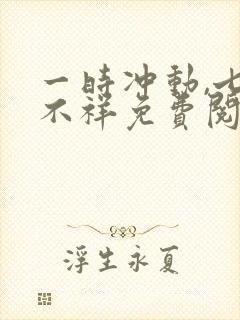 一時冲動,七
不祥免費閱
浮生永夏